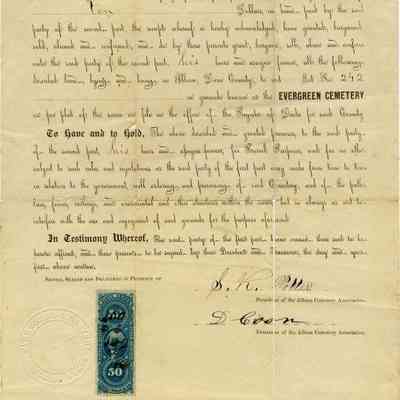 Ten Dollars in hand paid by the said
party of the second part, the receipt whereof is hereby acknowledged, have granted, bargained
sold, aliened and confirmed, and do by these presents grant, bargain, sell, alien and confirm
unto the said party of the second part, his heirs and assigns forever, all the following
described land lying and being in Albion, Dane County, to wit: Lot No. 242
in grounds known as the EVERGREEN CEMETERY
as per plat of the same on file in the office of the Register of Deeds for said County.
To Have and to Hold, The above described and granted premises, to the said party
of the second part his heirs and assigns forever, for Burial Purposes, and for no other
subject to such rules and regulations as the said party of the first part may make from time to time
in relation to the government, well ordering and preserving of said Cemetery, and of the
fences, railings, and ornamental and other structures within the same, but in always as not to
interfere with the use and enjoyment of said grounds for the purpose aforesaid.
In Testimony Whereof, The said party of the first part have caused their seal to be
hereto affixed, and these presents to be signed by their President and Treasurer, the day and year
first above written.
SIGNED, SEALED AND DELIVERED IN PRESENCE OF
S. R. Potter
President of the Albion Cemetery Association.
D Coon
Treasurer of the Albion Cemetery Association.
50